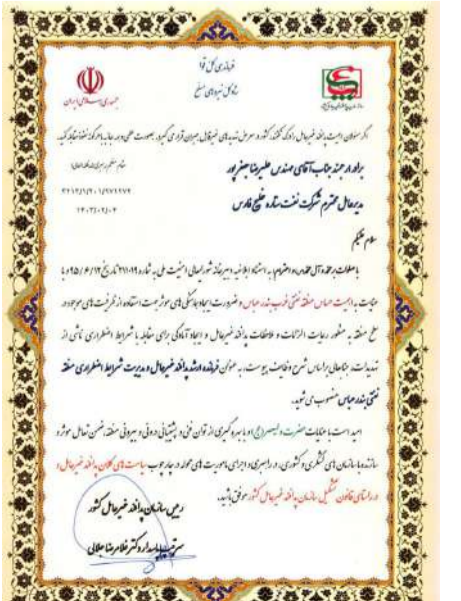 فرماندهی کل قوا
ستاد کل نیروهای مسلح
جمهوری اسلامی ایران
اگر مسئولان اهمیت پدافند غیرعامل را درک نکنند، کشور در معرض تهدیدهای غیرقابل جبران قرار می گیرد. بصورت علمی و همه جانبه با هرگونه تهدید مقابله کنید.
مقام معظم رهبری (مدظله العالی)
برادر ارجمند جناب آقای مهندس علیرضا جعفرپور
مدیرعامل محترم شرکت نفت ستاره خلیج فارس
۱۴۰۳/۰۲/۰۴
سلام علیکم
با صلوات بر محمد و آل محمد(ص) و احترام؛ به استناد ابلاغیه دبیرخانه شورایعالی امنیت ملی به شماره ۲۱۱۰۱۹ تاریخ ۹۵/۰۶/۱۲ و با
عنایت به اهمیت حساس منطقه نفتی غرب بندرعباس و ضرورت ایجاد هماهنگی های موثر جهت استفاده از ظرفیت های موجود در
سطح منطقه به منظور رعایت الزامات و ملاحظات پدافند غیرعامل و ایجاد آمادگی برای مقابله با شرایط اضطراری ناشی از
تهدیدات، جنابعالی براساس شرح وظایف پیوست، به عنوان فرمانده ارشد پدافند غیرعامل و مدیریت شرایط اضطراری منطقه
نفتی بندرعباس منصوب می شوید.
امید است با عنایات حضرت ولیعصر(عج) و با بهره گیری از توان فنی و پشتیبانی درونی و بیرونی منطقه، ضمن تعامل موثر و
سازنده با سازمان های لشکری و کشوری، در راهبری و اجرای ماموریت های محوله در چارچوب سیاست های کلان پدافند غیرعامل و
در راستای قانون تشکیل سازمان پدافند غیرعامل کشور موفق باشید.
رییس سازمان پدافند غیرعامل کشور
سرتیپ پاسدار دکتر غلامرضا جلالی